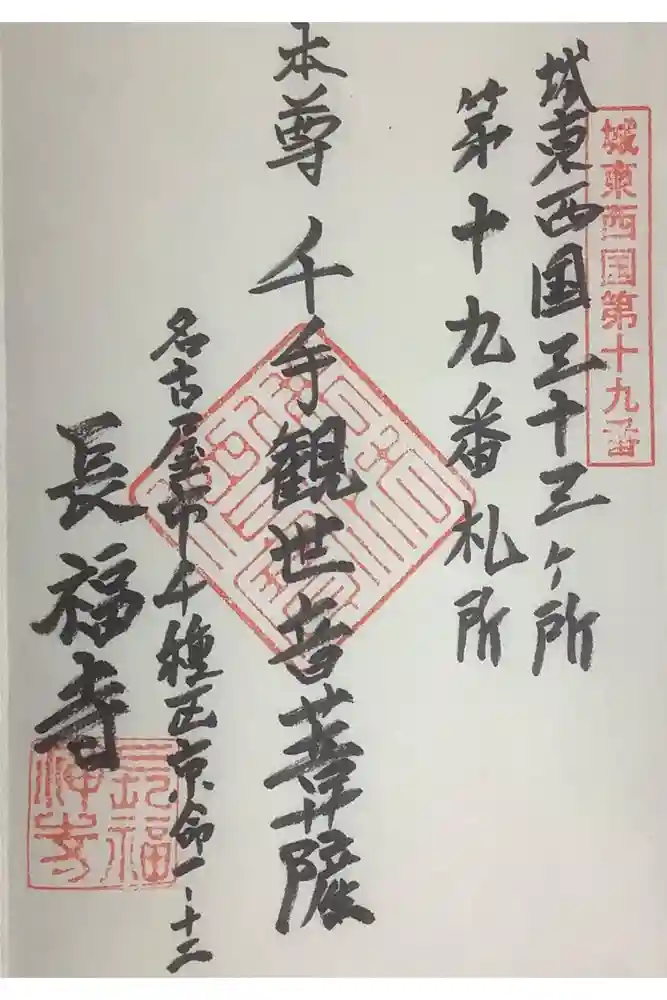 城東西国第十九番
城東西国三十三ヶ所
第十九番札所
本尊 千手観世音菩薩
名古屋市千種区京命一-十二
長福寺
長福
禅寺